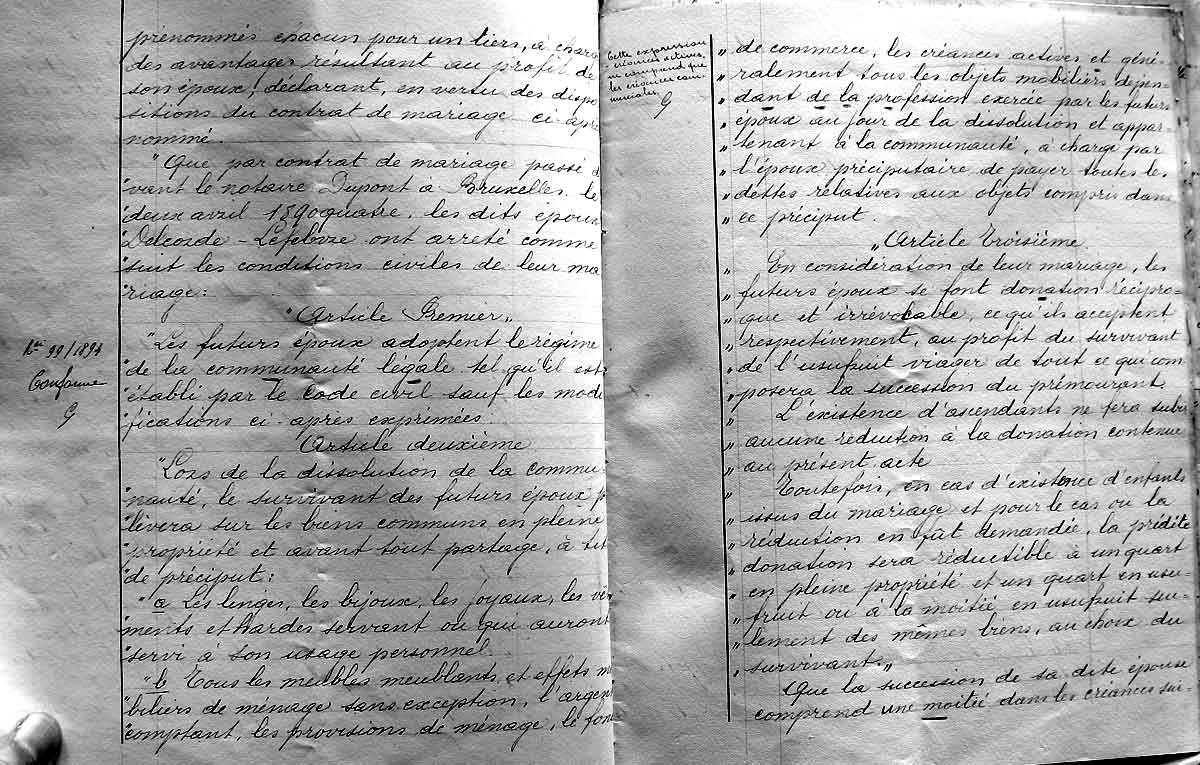 prénommés chacun pour un tiers, à charg
des avantages résultant au profit de
son époux, déclarant, en vertu des dispo
sitions du contrat de mariage ci apre
nommé.
"Que par contrat de mariage passé d
"vant le notaire Dupont à Bruxelles le
"deux avril 1890quatre, les dits époux
"Delcorde-Lefebvre ont arreté comme
"suit les conditions civiles de leur ma
"riage:
"Article Premier"
"Les futurs époux adoptent le régime
"de la communauté légale tel qu'il est
"établi par le Code civil sauf les modi
"fications ci-après exprimées.
Article deuxième
"Lors de la dissolution de la commu-
"nauté, le survivant des futurs époux p
"lèvera sur les biens communs en pleine
"propriété et avant tout partage, à tit
"de préciput:
"a Les linges, les bijoux, les joyaux, les vê
"ments et hardes servant ou qui auront
"servi à son usage personnel
"b Tous les meubles meublants et effets m
"biliers de ménage sans exception, l'argen
"comptant, les provisions de ménage, le fon
99/1894
Conforme
Cette expression
créances actives,
ne comprend que
les créances com-
merciales.
" de commerce, les créances actives et géné-
" ralement tous les objets mobiliers dépen-
" dant de la profession exercée par les futurs
" époux au jour de la dissolution et appar-
" tenant à la communauté, à charge par
" l'époux préciputaire de payer toutes les
" dettes relatives aux objets compris dans
" ce préciput.
"Article Troisième
" En considération de leur mariage, les
" futurs époux se font donation récipro-
" que et irrévocable, ce qu'ils acceptent
" respectivement, au profit du survivant
" de l'usufruit viager de tout ce qui com
" posera la succession du prémourant.
" L'éxistence d'ascendants ne fera subir
" aucune réduction à la donation contenue
" au présent acte
" Toutefois, en cas d'éxistence d'enfants
" issus du mariage et pour le cas ou la
" réduction en fut demandée, la prédite
" donation sera réductible à un quart
" en pleine propriété et un quart en usu-
" fruit ou à la moitié en usufruit seu-
" lement des mêmes biens, au choix du
" survivant."
Que la succession de sa dite épouse
comprend une moitié dans les créances sui-